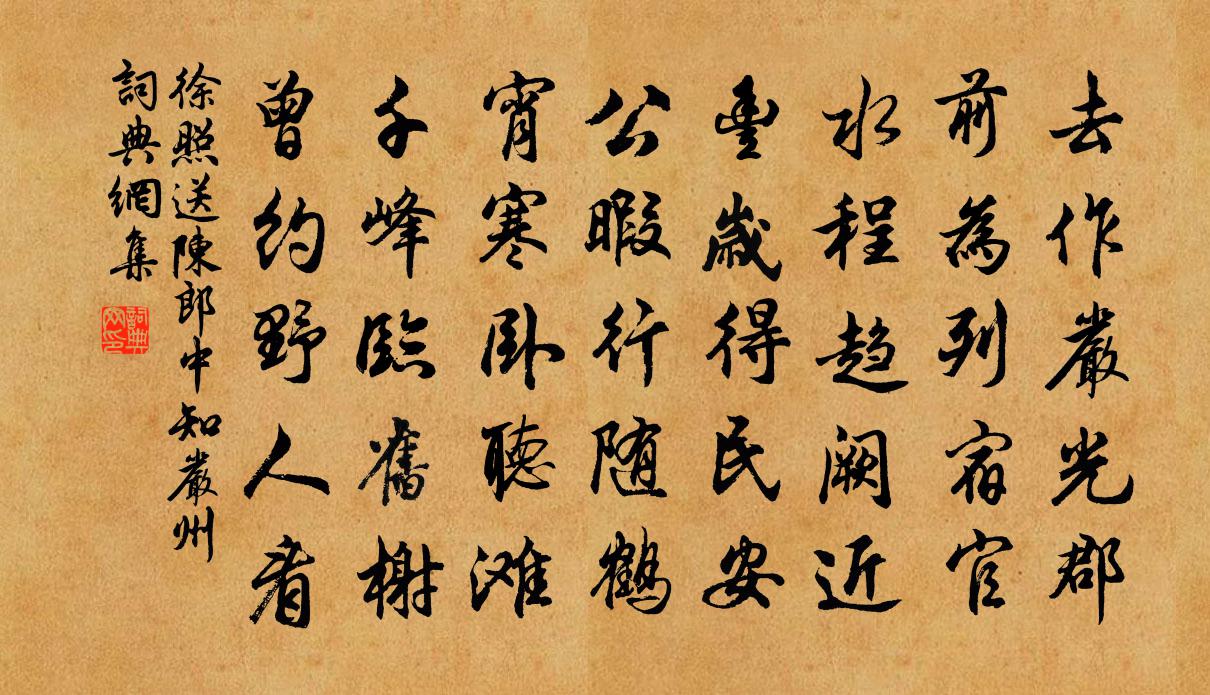 去作嚴光郡
前為列宿官
水程趋闕近
豊歲得民安
公暇行随鶴
宵寒卧聽滩
千峰臨舊榭
曾約野人看
徐照送陳郎中知嚴州
詞典網集
詞典网印